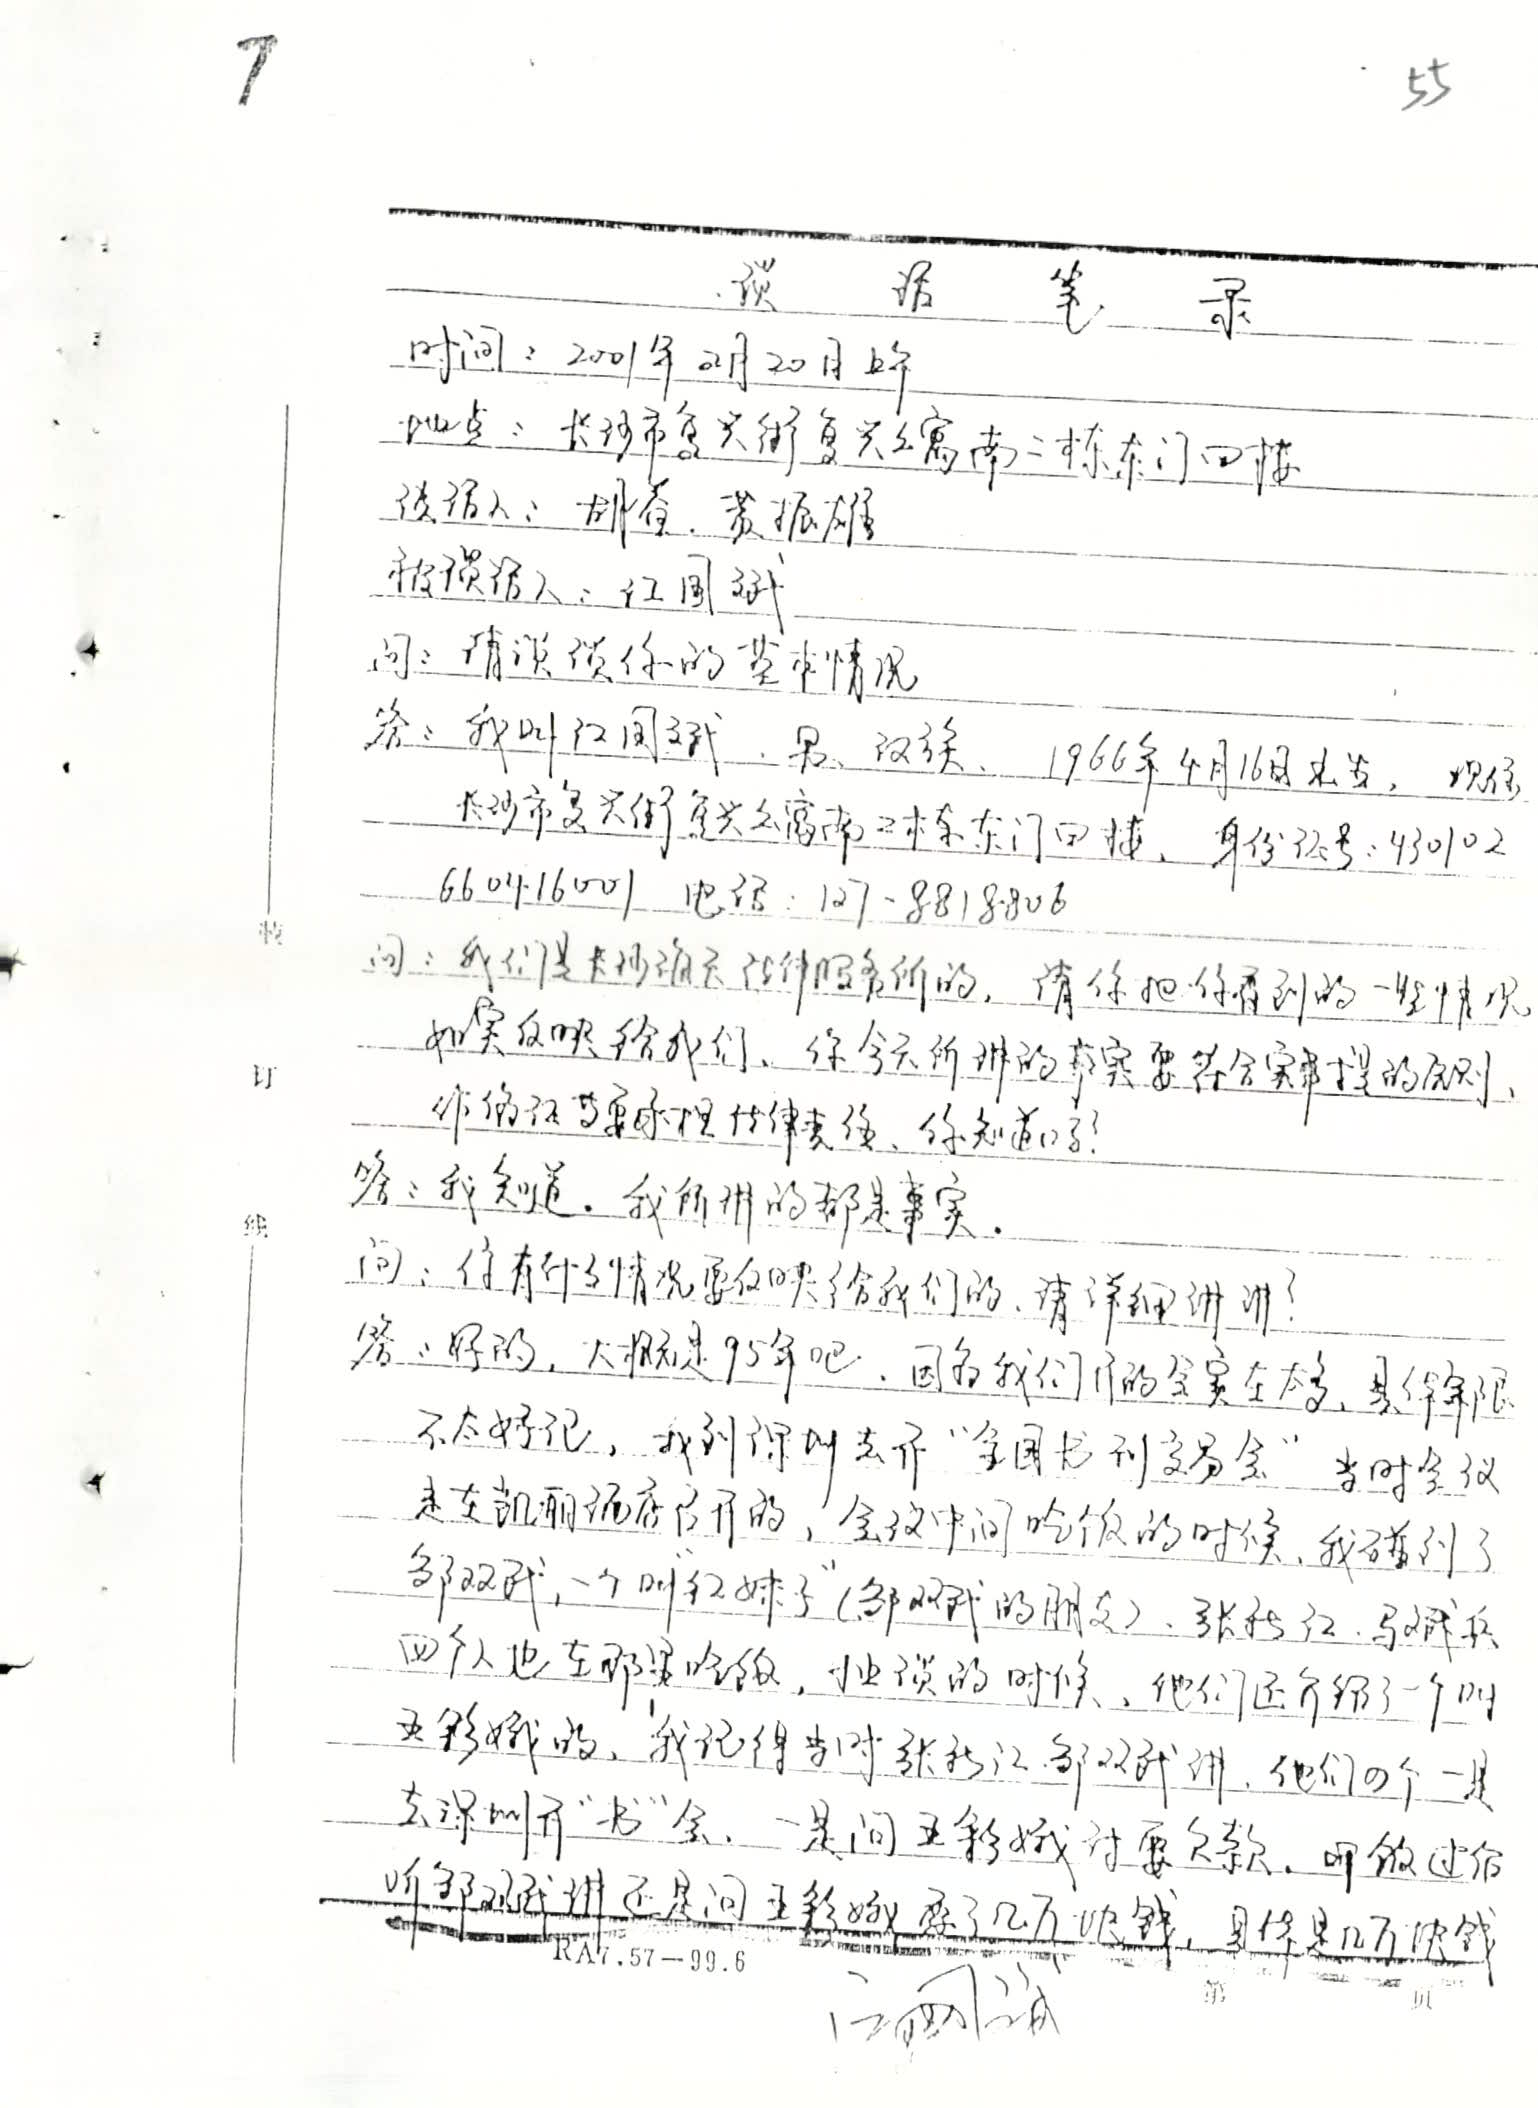 7
55
谈话笔录
时间：2001年2月20日上午
地点：长沙市复兴街复兴公寓南二栋东门四楼
谈话人：胡 . 黄振雄
被谈话人：江国斌
问：请谈谈你的基本情况
答：我叫江国斌、男、汉族、1966年4月16日出生，现住
长沙市复兴街复兴公寓南二栋东门四楼、身份证号：430102
660416001 电话：127-8818806
问：我们是长沙 法律服务所的，请你把你看到的一些情况
如实反映给我们、你今天所讲的事实要符合实事求是的原则、
作伪证要承担法律责任、你知道吗？
答：我知道．我所讲的都是事实．
问：你有什么情况要反映给我们的、请详细讲讲？
答：好的，大概是95年吧、因为我们开的会实在太多、具体年限
不太好记，我到深圳去开“全国书刊交易会”当时会议
是在凯丽酒店召开的，会议中间吃饭的时候、我碰到了
邹双武，一个叫“红妹子”（邹双武的朋友）、张新江、马斌兵
四个人也在那里吃饭，扯谈的时候、他们还介绍了一个叫
王彩娥的、我记得当时张新江.邹双武讲、他们四个一是
去深圳开“书”会、二是问王彩娥讨要欠款．吃饭过后
听邹双武讲还是问王彩娥 了几万块钱，具体是几万块钱
RA7.57—99.6
第 页
江国斌
装
订
线